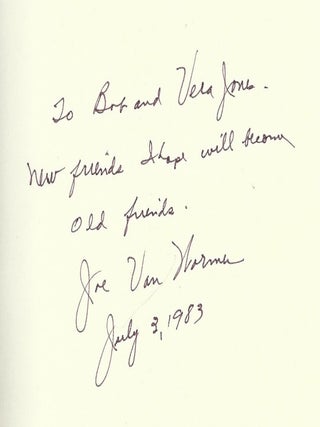 To Bob and Vera Jones.
New friends I hope will become
old friends.
Joe Van Wormer
July 3, 1983